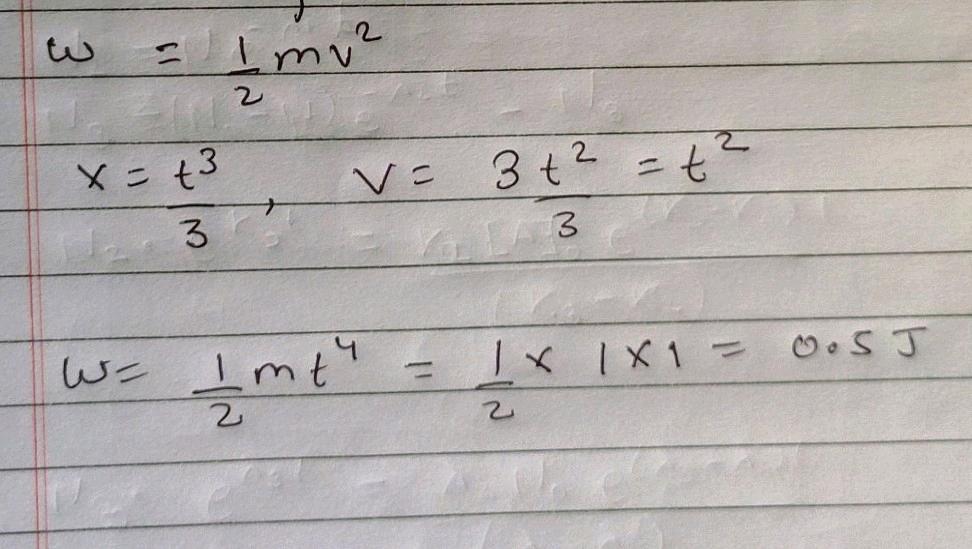 w = 1/2 mv²
x = t³/3 , v = 3t²/3 = t²
w = 1/2 mt⁴ = 1/2 x 1 x 1 = 0.5 J